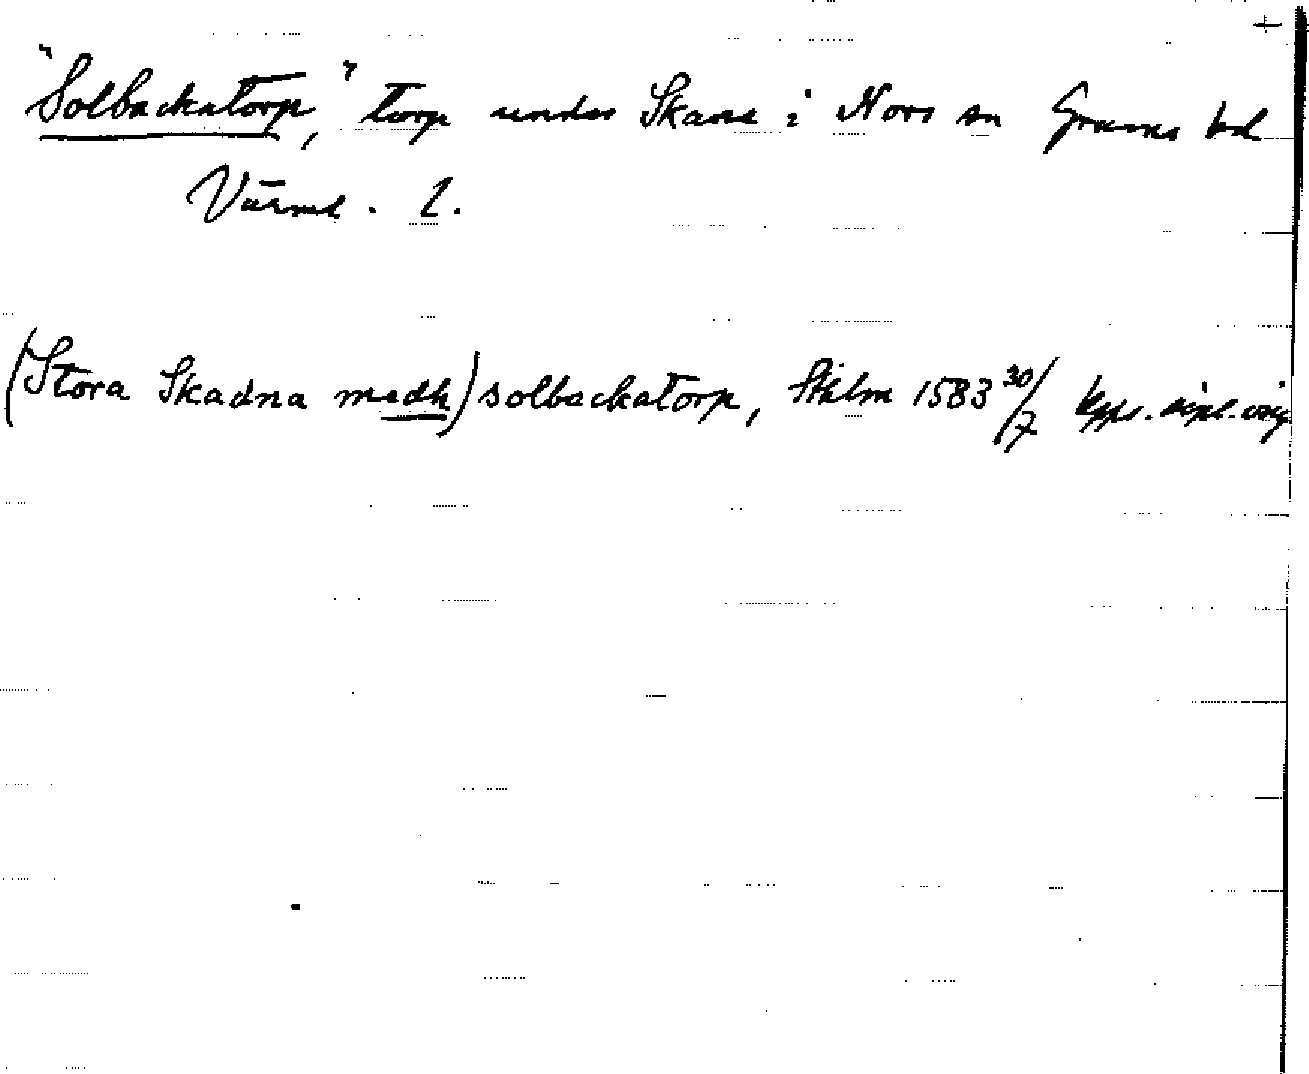 "Solbackatorp," torp under Skane i Nors sn Grums hd
Värml. l.
(Stora Skadna medh) solbackatorp, Sthlm 1583 30/7 dipl. orig